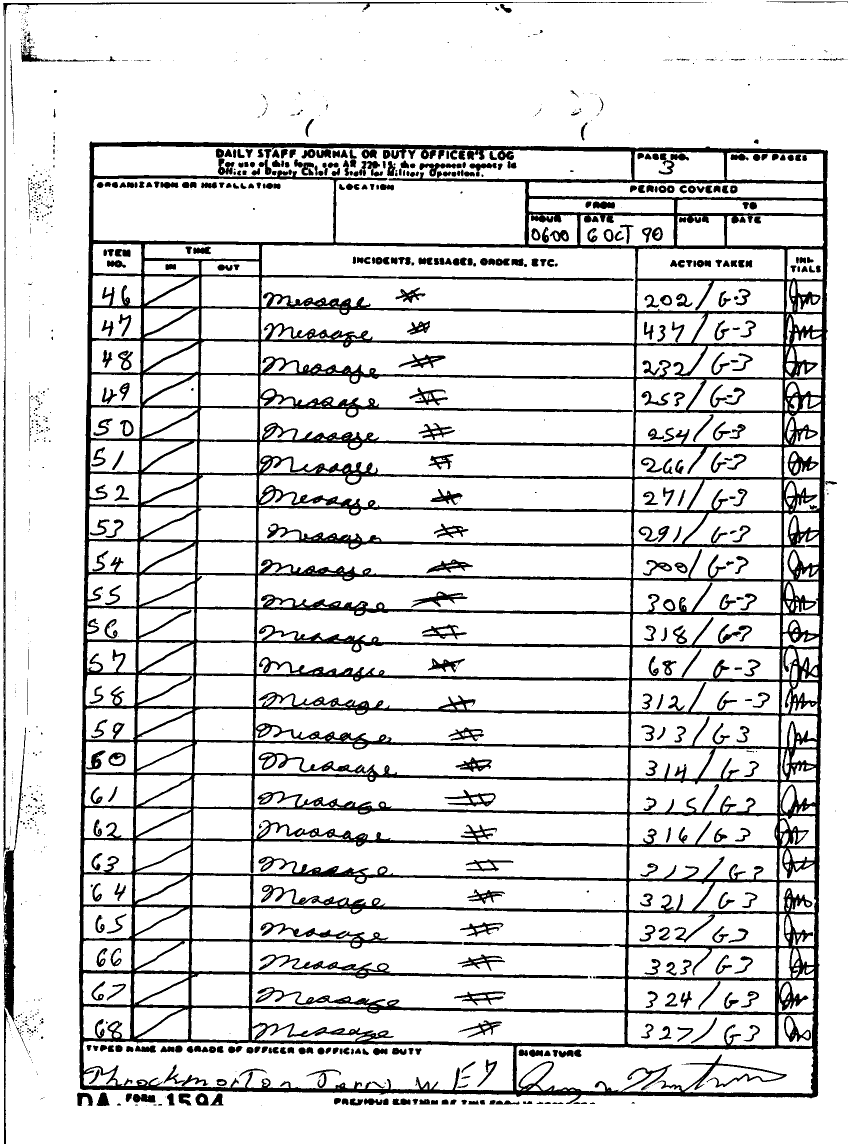 DAILY STAFF JOURNAL OR DUTY OFFICER'S LOG
For use of this form, see AR 220-15; the proponent agency is
Office of Deputy Chief of Staff for Military Operations.
PAGE NO.
3
NO. OF PAGES
ORGANIZATION OR INSTALLATION
LOCATION
PERIOD COVERED
FROM TO
HOUR DATE HOUR DATE
0600 6 OCT 90
ITEM NO. TIME IN OUT INCIDENTS, MESSAGES, ORDERS, ETC. ACTION TAKEN INI-TIALS
46 Message # 202/G-3
47 Message # 437/G-3
48 Message # 232/G-3
49 Message # 253/G-3
50 Message # 254/G-3
51 Message # 266/G-3
52 Message # 271/G-3
53 Message # 291/G-3
54 Message # 300/G-3
55 Message # 306/G-3
56 Message # 318/G-3
57 Message # 68/G-3
58 Message # 312/G-3
59 Message # 313/G3
60 Message # 314/G3
61 Message # 315/G3
62 Message # 316/G3
63 Message # 317/G3
64 Message # 321/G3
65 Message # 322/G3
66 Message # 323/G3
67 Message # 324/G3
68 Message # 327/G3
TYPED NAME AND GRADE OF OFFICER OR OFFICIAL ON DUTY
Throckmorton Jerry W E7
SIGNATURE
DA FORM 1594
PREVIOUS EDITION OF THIS FORM IS